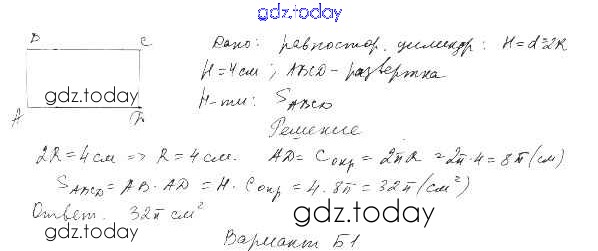 gdz.today
B C
Дано: равностор. цилиндр: H=d=2R
H=4см; ABCD-развертка
gdz.today
Н-ти: S_ABCD
A D
Решение
2R=4см => R=4см. AD=C_окр=2πR=2π·4=8π(см)
S_ABCD=AB·AD=H·C_окр=4·8π=32π(см²)
Ответ. 32π см²
gdz.today
gdz.today
Вариант Б1